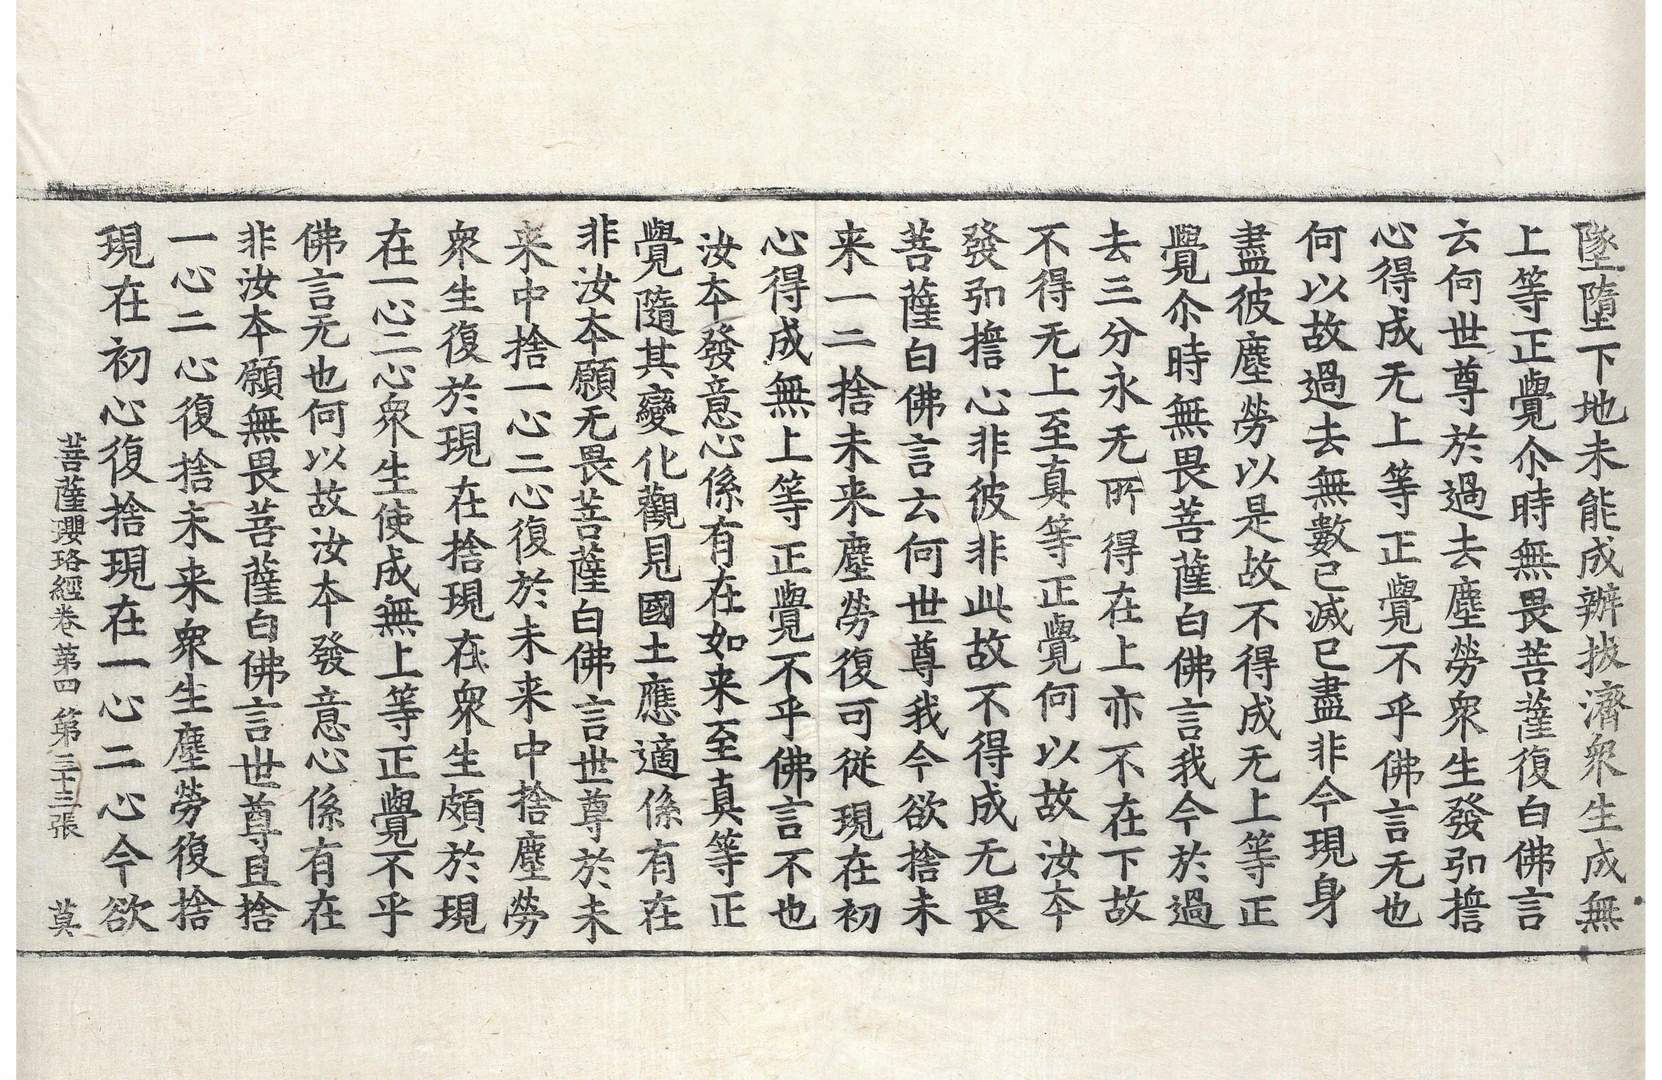 墜墮墮下地未能成辦拔濟衆生成無
上等正覺尒時無畏菩薩復白佛言
云何世尊於過去塵勞衆生發弘擔
心得成无上等正覺不乎佛言无也
何以故過去無數已滅已盡非今現身
盡彼塵勞以是故不得成无上等正
覺尒時無畏菩薩白佛言我今於過
去三分永无所得在上亦不在下故
不得无上至真等正覺何以故汝本
發弘擔心非彼非此故不得成无畏
菩薩白佛言云何世尊我今欲捨未
来一二捨未来塵勞復可從現在初
心得成無上等正覺不乎佛言不也
汝本發意心係有在如来至真等正
覺隨其變化觀見國土應適係有在
非汝本願无畏菩薩白佛言世尊於未
来中捨一心二心復於未来中捨塵勞
衆生復於現在捨現在衆生頗於現
在一心二心衆生使成無上等正覺不乎
佛言无也何以故汝本發意心係有在
非汝本願無畏菩薩白佛言世尊且捨
一心二心復捨未来衆生塵勞復捨
現在初心復捨現在一心二心今欲
菩薩瓔珞經卷第四 第三十三張 莫